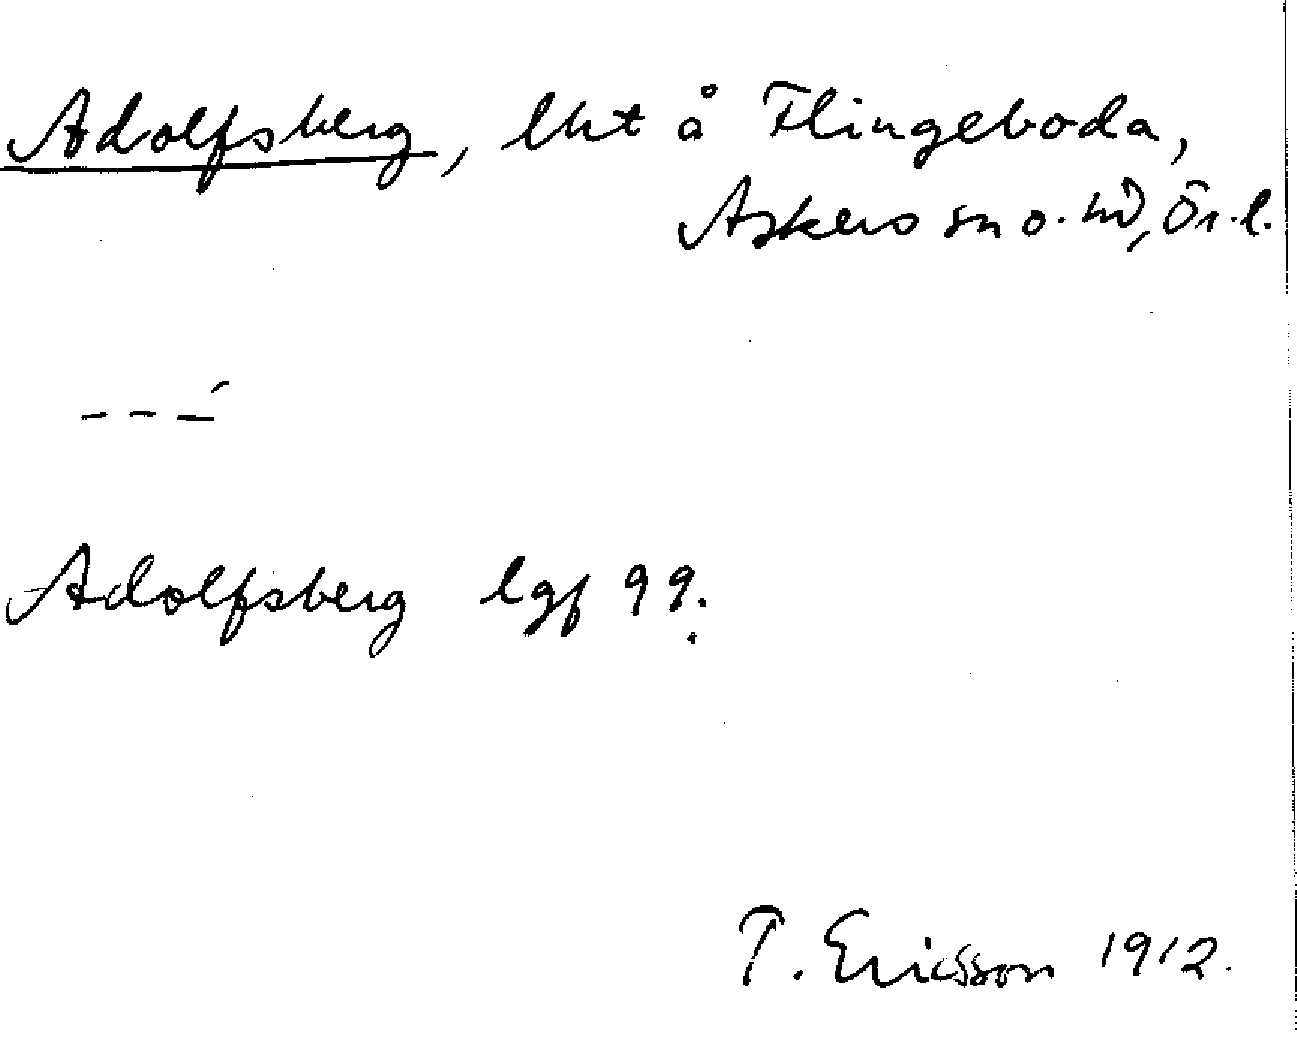 Adolfsberg, lht å Flingeboda,
Askers sn o. hd, Ör. l.
- - -́
Adolfsberg lgf 99.
T. Ericsson 1912.